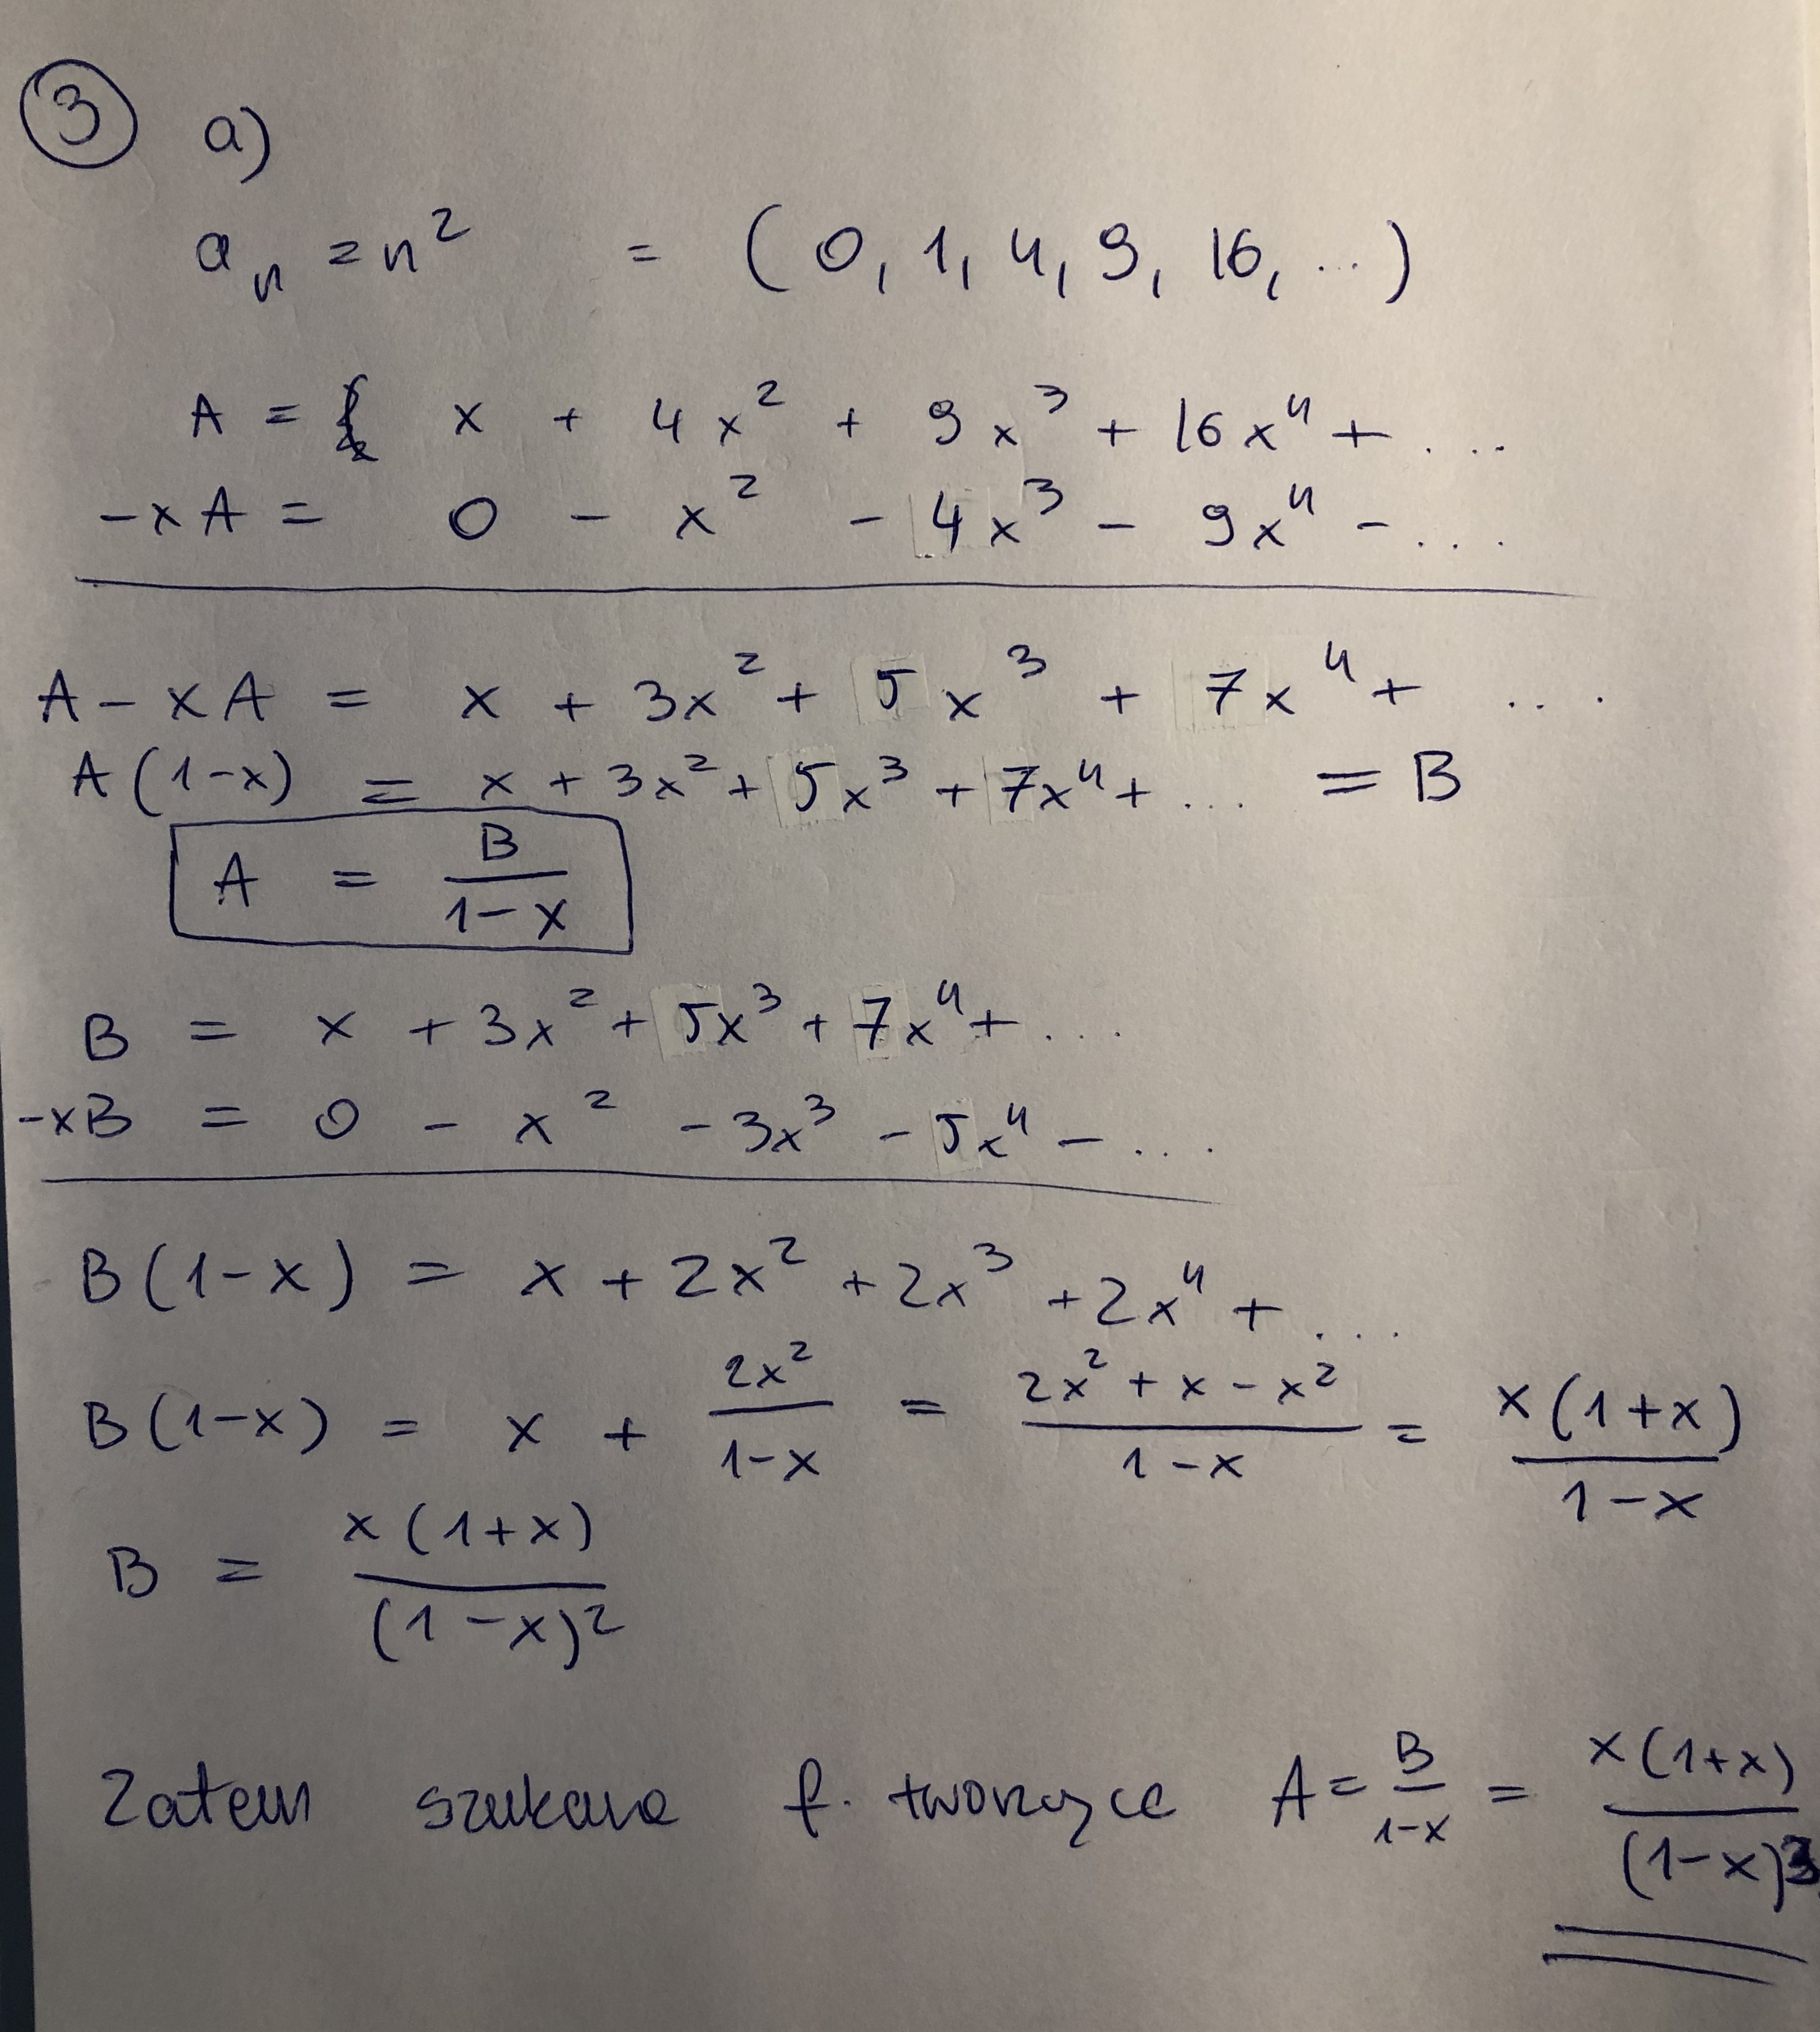 3 a)
aₙ = n² = (0, 1, 4, 9, 16, ...)
A = x + 4x² + 9x³ + 16x⁴ + ...
-xA = 0 - x² - 4x³ - 9x⁴ - ...
A - xA = x + 3x² + 5x³ + 7x⁴ + ....
A(1-x) = x + 3x² + 5x³ + 7x⁴ + ... = B
A = B/(1-x)
B = x + 3x² + 5x³ + 7x⁴ + ...
-xB = 0 - x² - 3x³ - 5x⁴ - ...
B(1-x) = x + 2x² + 2x³ + 2x⁴ + ...
B(1-x) = x + 2x²/(1-x) = (2x² + x - x²)/(1-x) = x(1+x)/(1-x)
B = x(1+x)/(1-x)²
Zatem szukana f. tworząca A = B/(1-x) = x(1+x)/(1-x)³